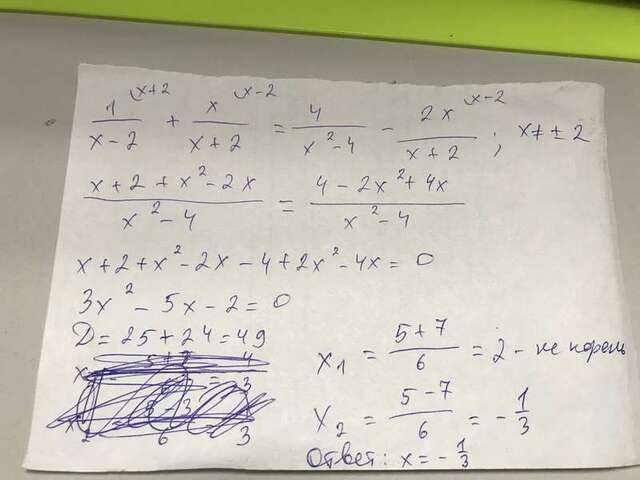 1/(x-2) ^(x+2) + x/(x+2) ^(x-2) = 4/(x²-4) - 2x/(x+2) ^(x-2) ; x≠±2
(x+2+x²-2x)/(x²-4) = (4-2x²+4x)/(x²-4)
x+2+x²-2x-4+2x²-4x=0
3x²-5x-2=0
D=25+24=49
x₁ = (5+7)/6 = 2 - не корень
x₂ = (5-7)/6 = -1/3
Ответ: x=-1/3